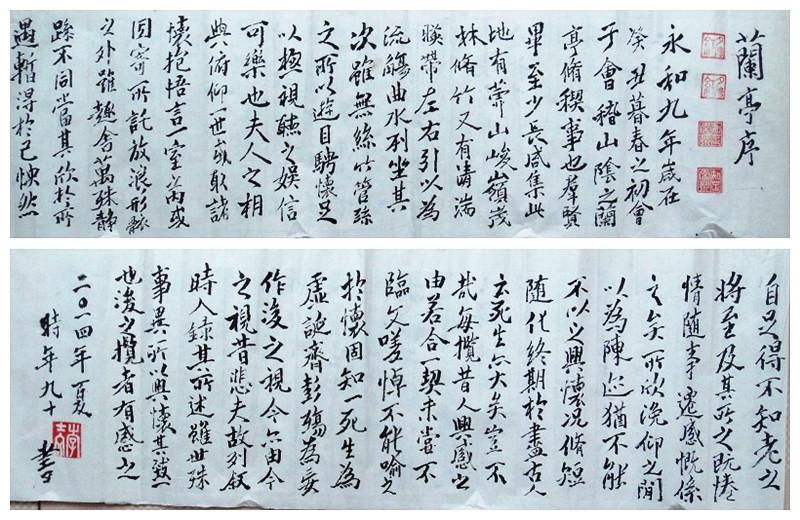 蘭亭序
永和九年歲在
癸丑暮春之初會
于會稽山陰之蘭
亭脩稧事也羣賢
畢至少長咸集此
地有崇山峻嶺茂
林脩竹又有清湍
暎帶左右引以為
流觴曲水列坐其
次雖無絲竹管絃
之所以遊目騁懷足
以極視聽之娛信
可樂也夫人之相
與俯仰一世或取諸
懷抱悟言一室之內或
因寄所託放浪形骸
之外雖趣舍萬殊靜
躁不同當其欣於所
遇暫得於己快然
自足得不知老之
將至及其所之既惓
情隨事遷感慨係
之矣所欣俛仰之間
以為陳迹猶不能
不以之興懷況脩短
隨化終期於盡古人
云死生亦大矣豈不
哉每攬昔人興感之
由若合一契未嘗不
臨文嗟悼不能喻之
於懷固知一死生為
虛誕齊彭殤為妄
作後之視今亦由今
之視昔悲夫故列敘
時人錄其所述雖世殊
事異所以興懷其致
也後之攬者有感之
二〇一四年夏
時年九十